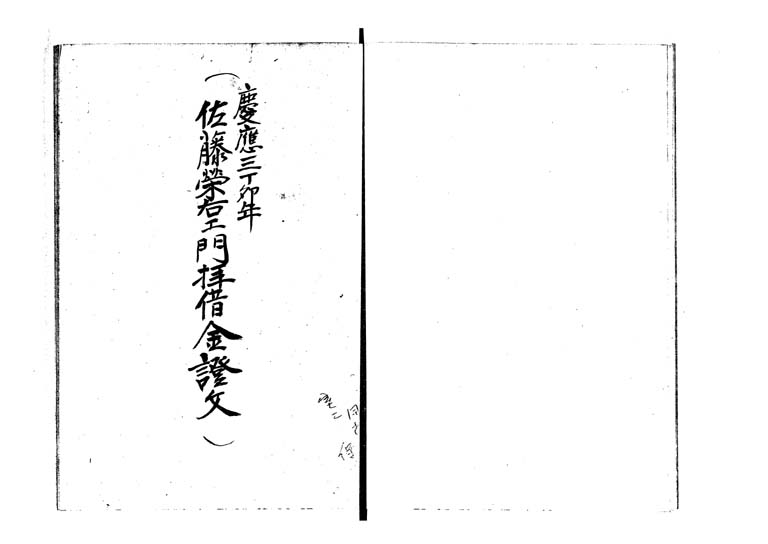 慶應三丁卯年
(佐藤榮右エ門拝借金證文)